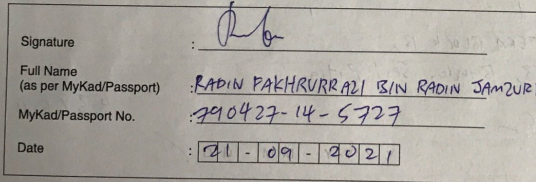 Signature :
Full Name
(as per MyKad/Passport) : RADIN FAKHRURRAZI BIN RADIN JAMZURI
MyKad/Passport No. : 790427-14-5727
Date : 21-09-2021